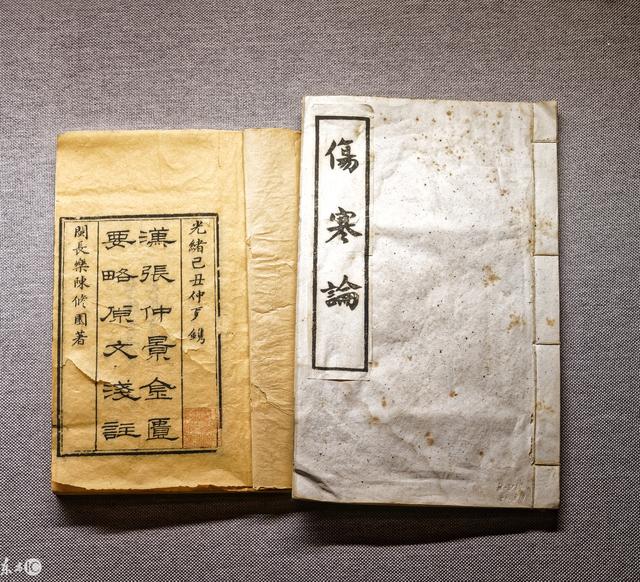 傷寒論
光緒己丑仲鐫
漢張仲景金匱
要略原文淺註
閩長樂陳修園著
东方IC